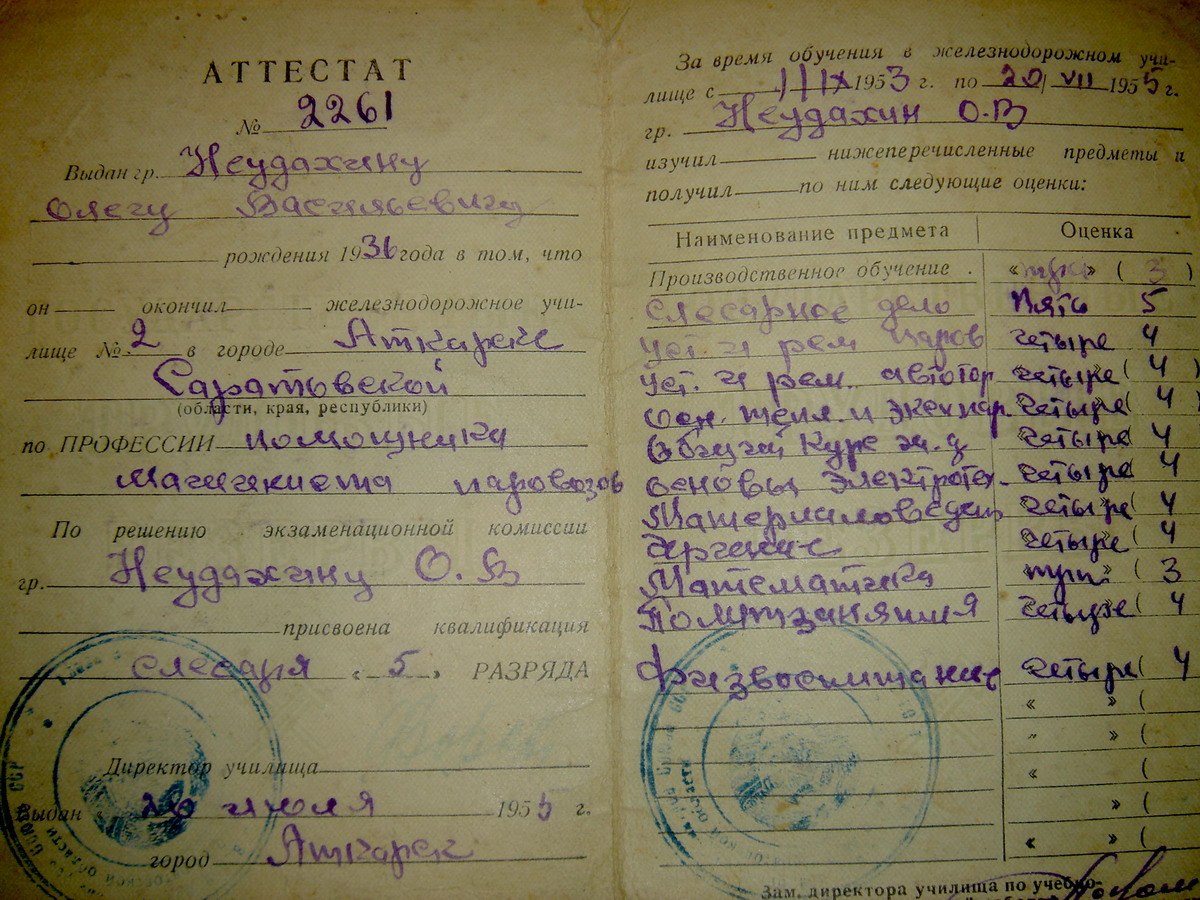 АТТЕСТАТ
№ 2261
Выдан гр. Неудахину
Олегу Васильевичу
рождения 1936 года в том, что
он окончил железнодорожное учи-
лище № 2 в городе Аткарске
Саратовской
(области, края, республики)
по ПРОФЕССИИ помощника
машиниста паровозов
По решению экзаменационной комиссии
гр. Неудахину О. В
присвоена квалификация
слесаря « 5 » РАЗРЯДА
Директор училища
Выдан 20 июля 1955 г.
город Аткарск
За время обучения в железнодорожном учи-
лище с 1/IX 1953 г. по 20/VII 1955 г.
гр. Неудахин О.В
изучил нижеперечисленные предметы и
получил по ним следующие оценки:
Наименование предмета Оценка
Производственное обучение . «три» ( 3 )
Слесарное дело Пять 5
Уст. и рем паров четыре 4
Уст. и рем. автотор четыре ( 4 )
Осн. тепл. и четыре ( 4 )
Общий курс ж.д четыре 4
Основы Электротех. четыре 4
Материаловеден четыре ( 4
Черчение четыре ( 4
Математика три ( 3
Политзанятия четыре ( 4
Физвоспитание четыре ( 4
« » (
„ » (
« (
» (
« » (
Зам. директора училища по учебно-